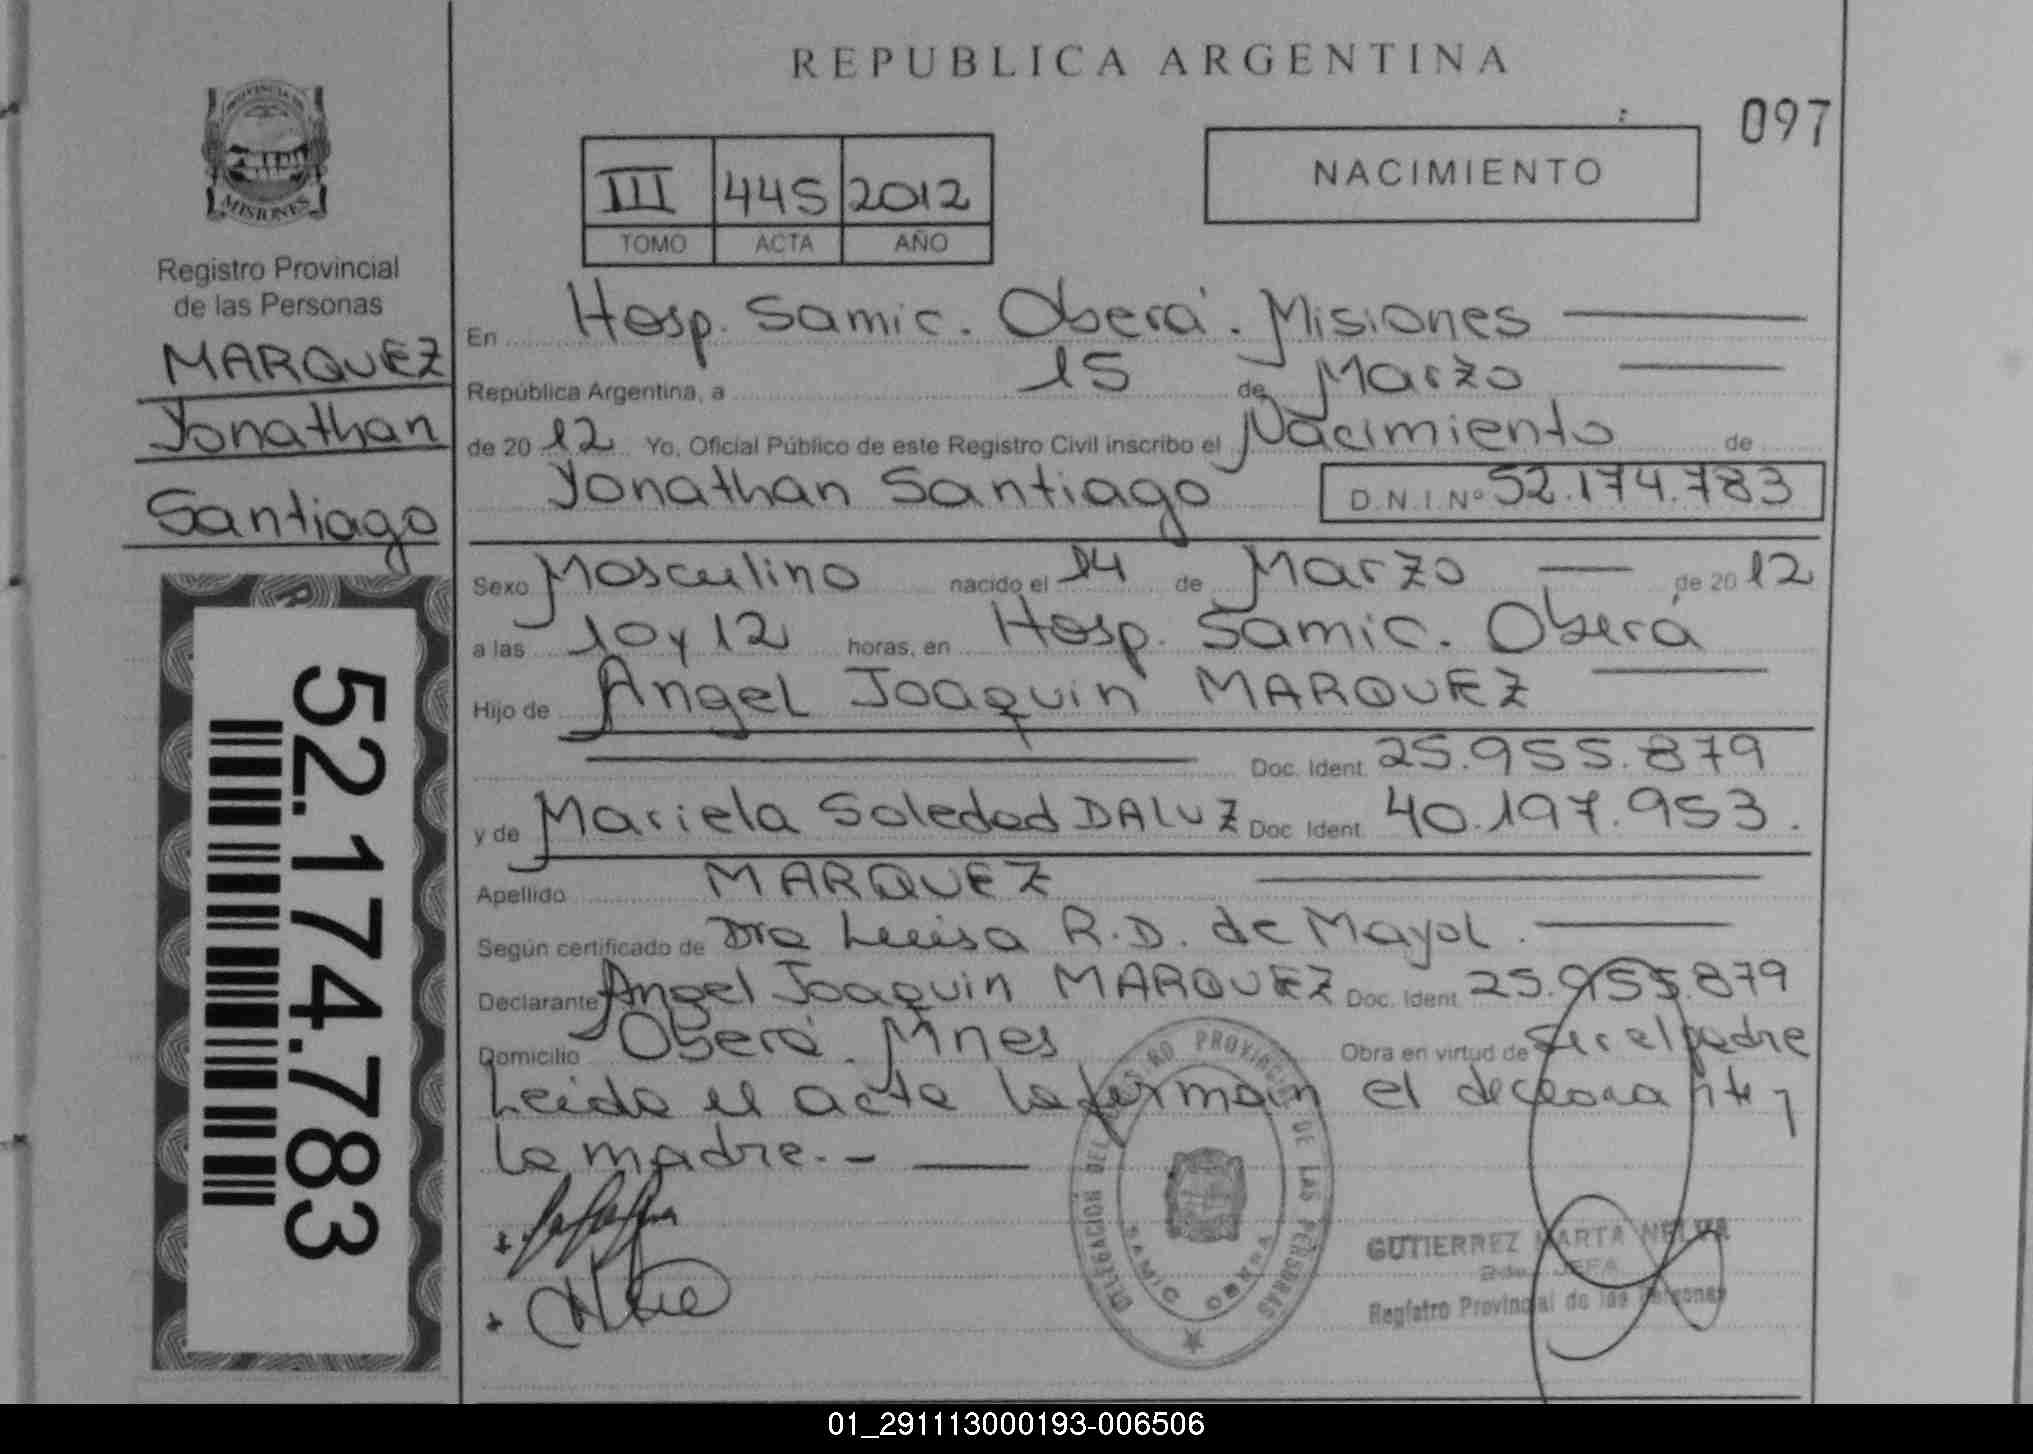 REPUBLICA ARGENTINA
097
III 445 2012
TOMO ACTA AÑO
NACIMIENTO
PROVINCIA DE
MISIONES
Registro Provincial
de las Personas
MARQUEZ
Yonathan
Santiago
52.174.783
En Hosp. Samic. Oberá. Misiones
República Argentina, a 15 de Marzo
de 2012 Yo, Oficial Público de este Registro Civil inscribo el Nacimiento de
Yonathan Santiago D.N.I.Nº 52.174.783
Sexo Masculino nacido el 14 de Marzo de 2012
a las 10 y 12 horas, en Hosp. Samic. Oberá
Hijo de Angel Joaquin MARQUEZ
Doc. Ident. 25.955.879
y de Mariela Soledad DALUZ Doc. Ident. 40.197.953.
Apellido MARQUEZ
Según certificado de Dra Luisa R.D. de Mayol.
Declarante Angel Joaquin MARQUEZ Doc. Ident. 25.955.879
Domicilio Oberá. Mnes Obra en virtud de ser el padre
Leida el acta la firman el declarante y
la madre.-
DELEGACION DEL REGISTRO PROVINCIAL DE LAS PERSONAS
SAMIC OBERA
GUTIERREZ MARTA NELVA
2da. JEFA
Registro Provincial de las Personas
01_291113000193-006506